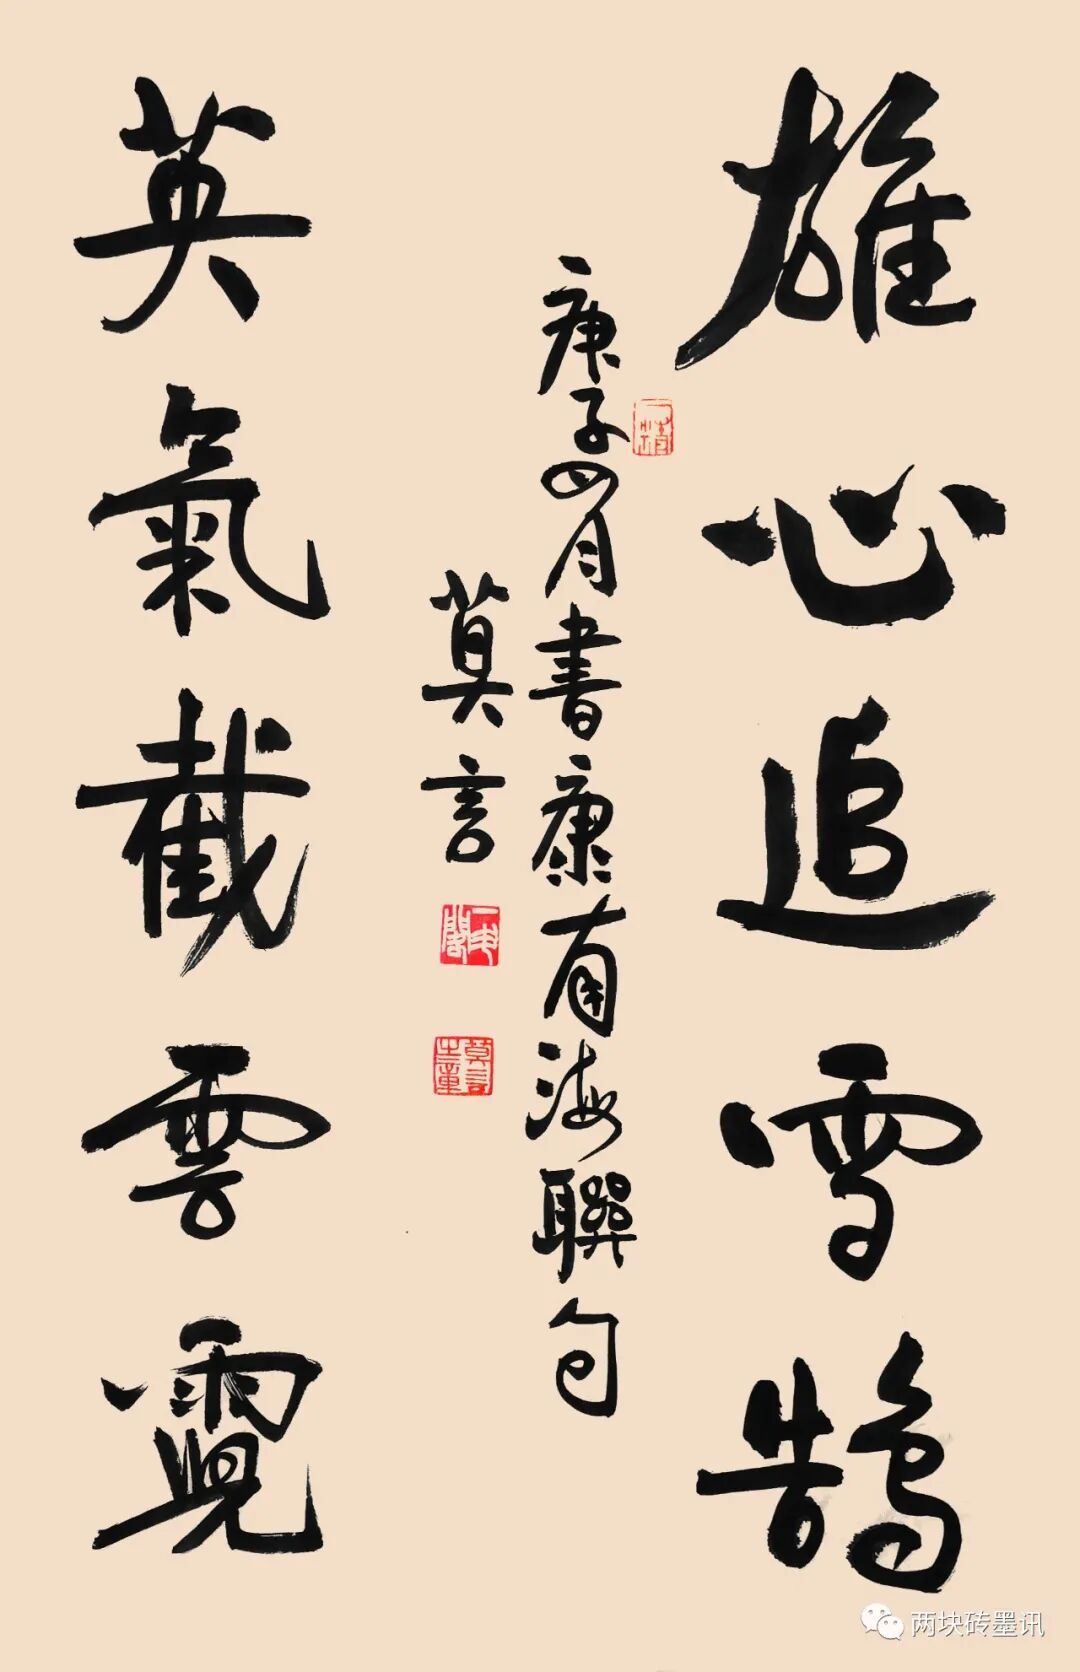 雄心追雪鵠
庚子四月書康南海聯句
莫言
英氣截雲霓
两块砖墨讯